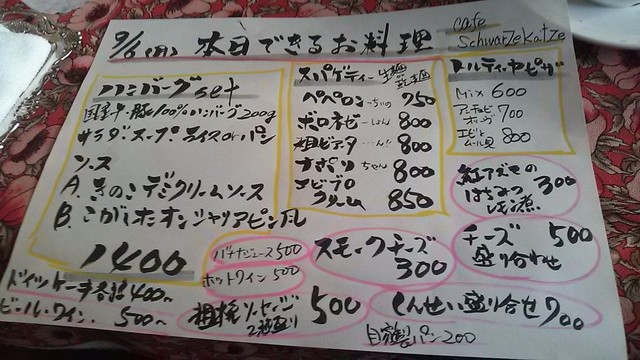 9/6(月) 本日できるお料理
cafe
Schwarze Katze
ハンバーグset
国産牛・豚100%ハンバーグ200g
サラダスープライスorパン
ソース
A. きのこデミクリームソース
B. こがしオニオンシャリアピン風
1400
スパゲティー
ペペロンーちーの 750
ボロネぜーしょん 800
相ビアター…ん!! 800
ナポリちゃん 800
エビブロ
クリーム 850
トルティーヤピザ
Mix 600
アンチョビ
オリーヴ 700
エビと
ムール貝 800
紅アズマの
はちみつ
レモン煮 300
バナナジュース 500
ホットワイン 500
スモークチーズ
300
チーズ
盛り合わせ 500
ドイツケーキ各種400〜
ビール・ワイン. 500〜
粗挽ソーセージ
2種盛り 500
くんせい盛り合せ 700
自家製パン200